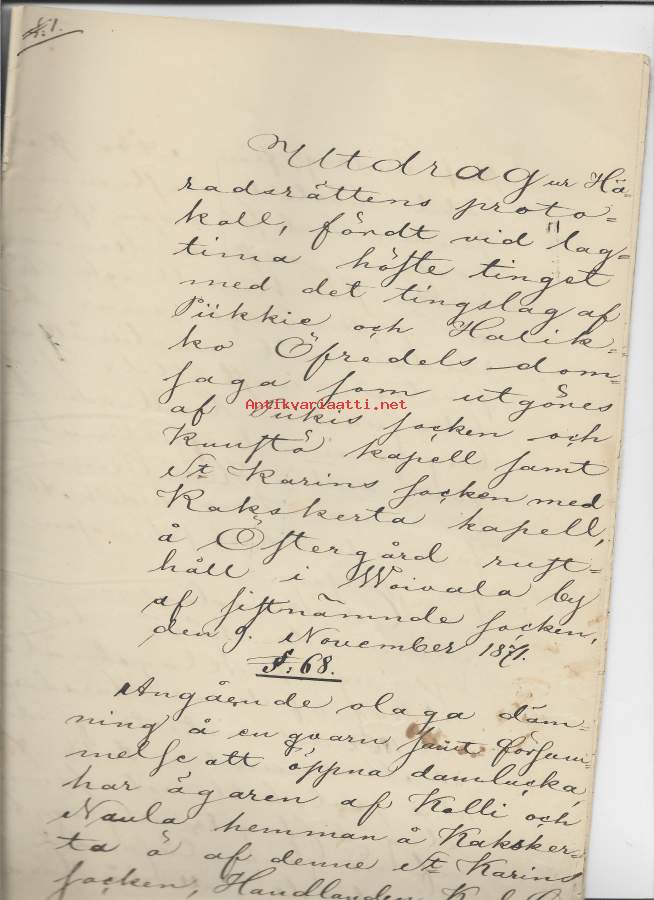 §. 1.
Utdrag ur Hä=
radsrättens proto=
koll, fördt vid lag=
tima höste tinget
med det tingslag af
Piikkie och Halik=
ko Öfredels dom=
saga som utgöres
Antikvariaatti.net
af Pukis socken och
Kuustö kapell samt
St Karins socken med
Kakskerta kapell,
å Östergård rust=
håll i Woivala by
af sistnämnde socken,
den 9. November 1871.
§: 68.
Angående olaga däm=
ning å en qvarn samt försum=
melse att öppna damlucka,
har ägaren af Kolli och
Naula hemman å Kaksker=
ta ö af denne St Karins
socken, Handlanden